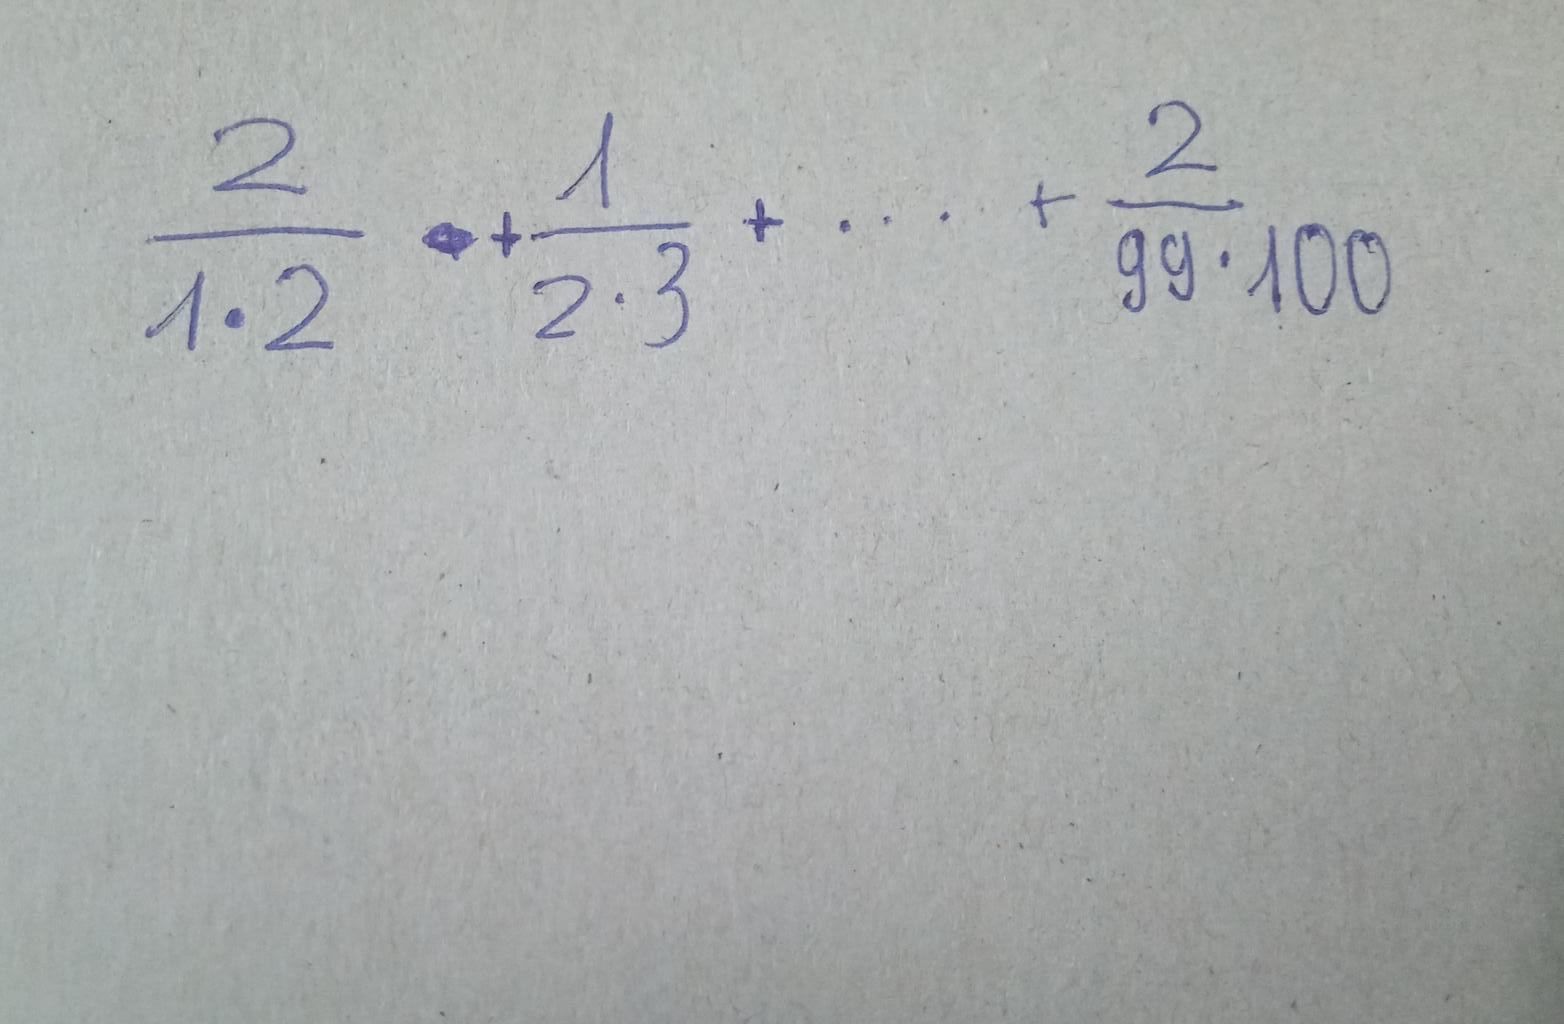 2/(1·2) + 1/(2·3) + .... + 2/(99·100)